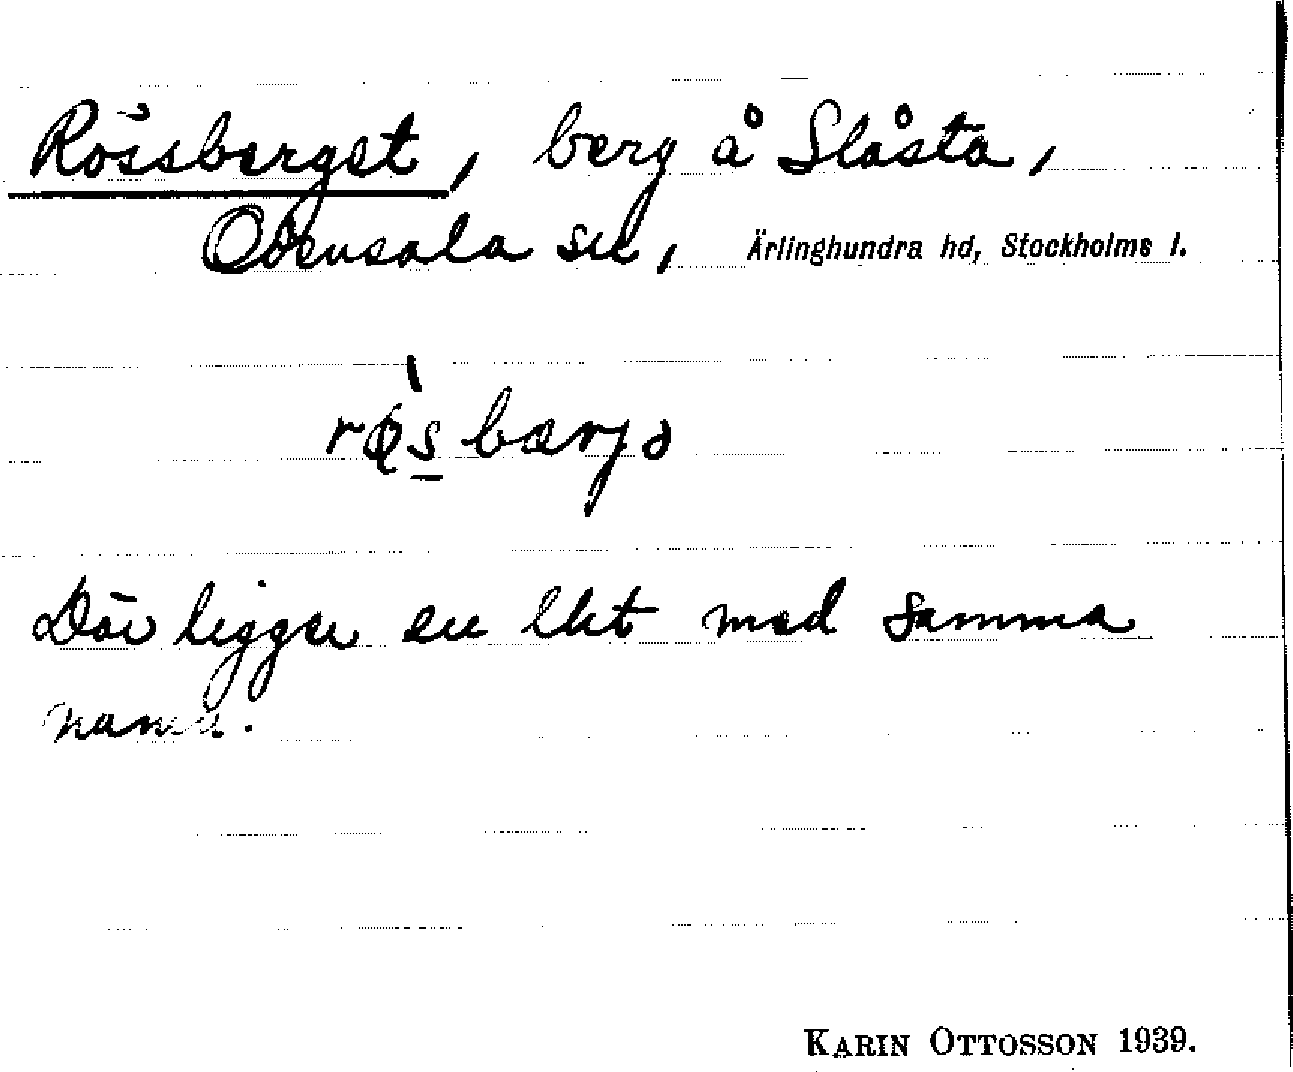 Rössberget, berg å Slåsta,
Odensala sn, Ärlinghundra hd, Stockholms l.
Där ligger en lht med samma
namn.
KARIN OTTOSSON 1939.